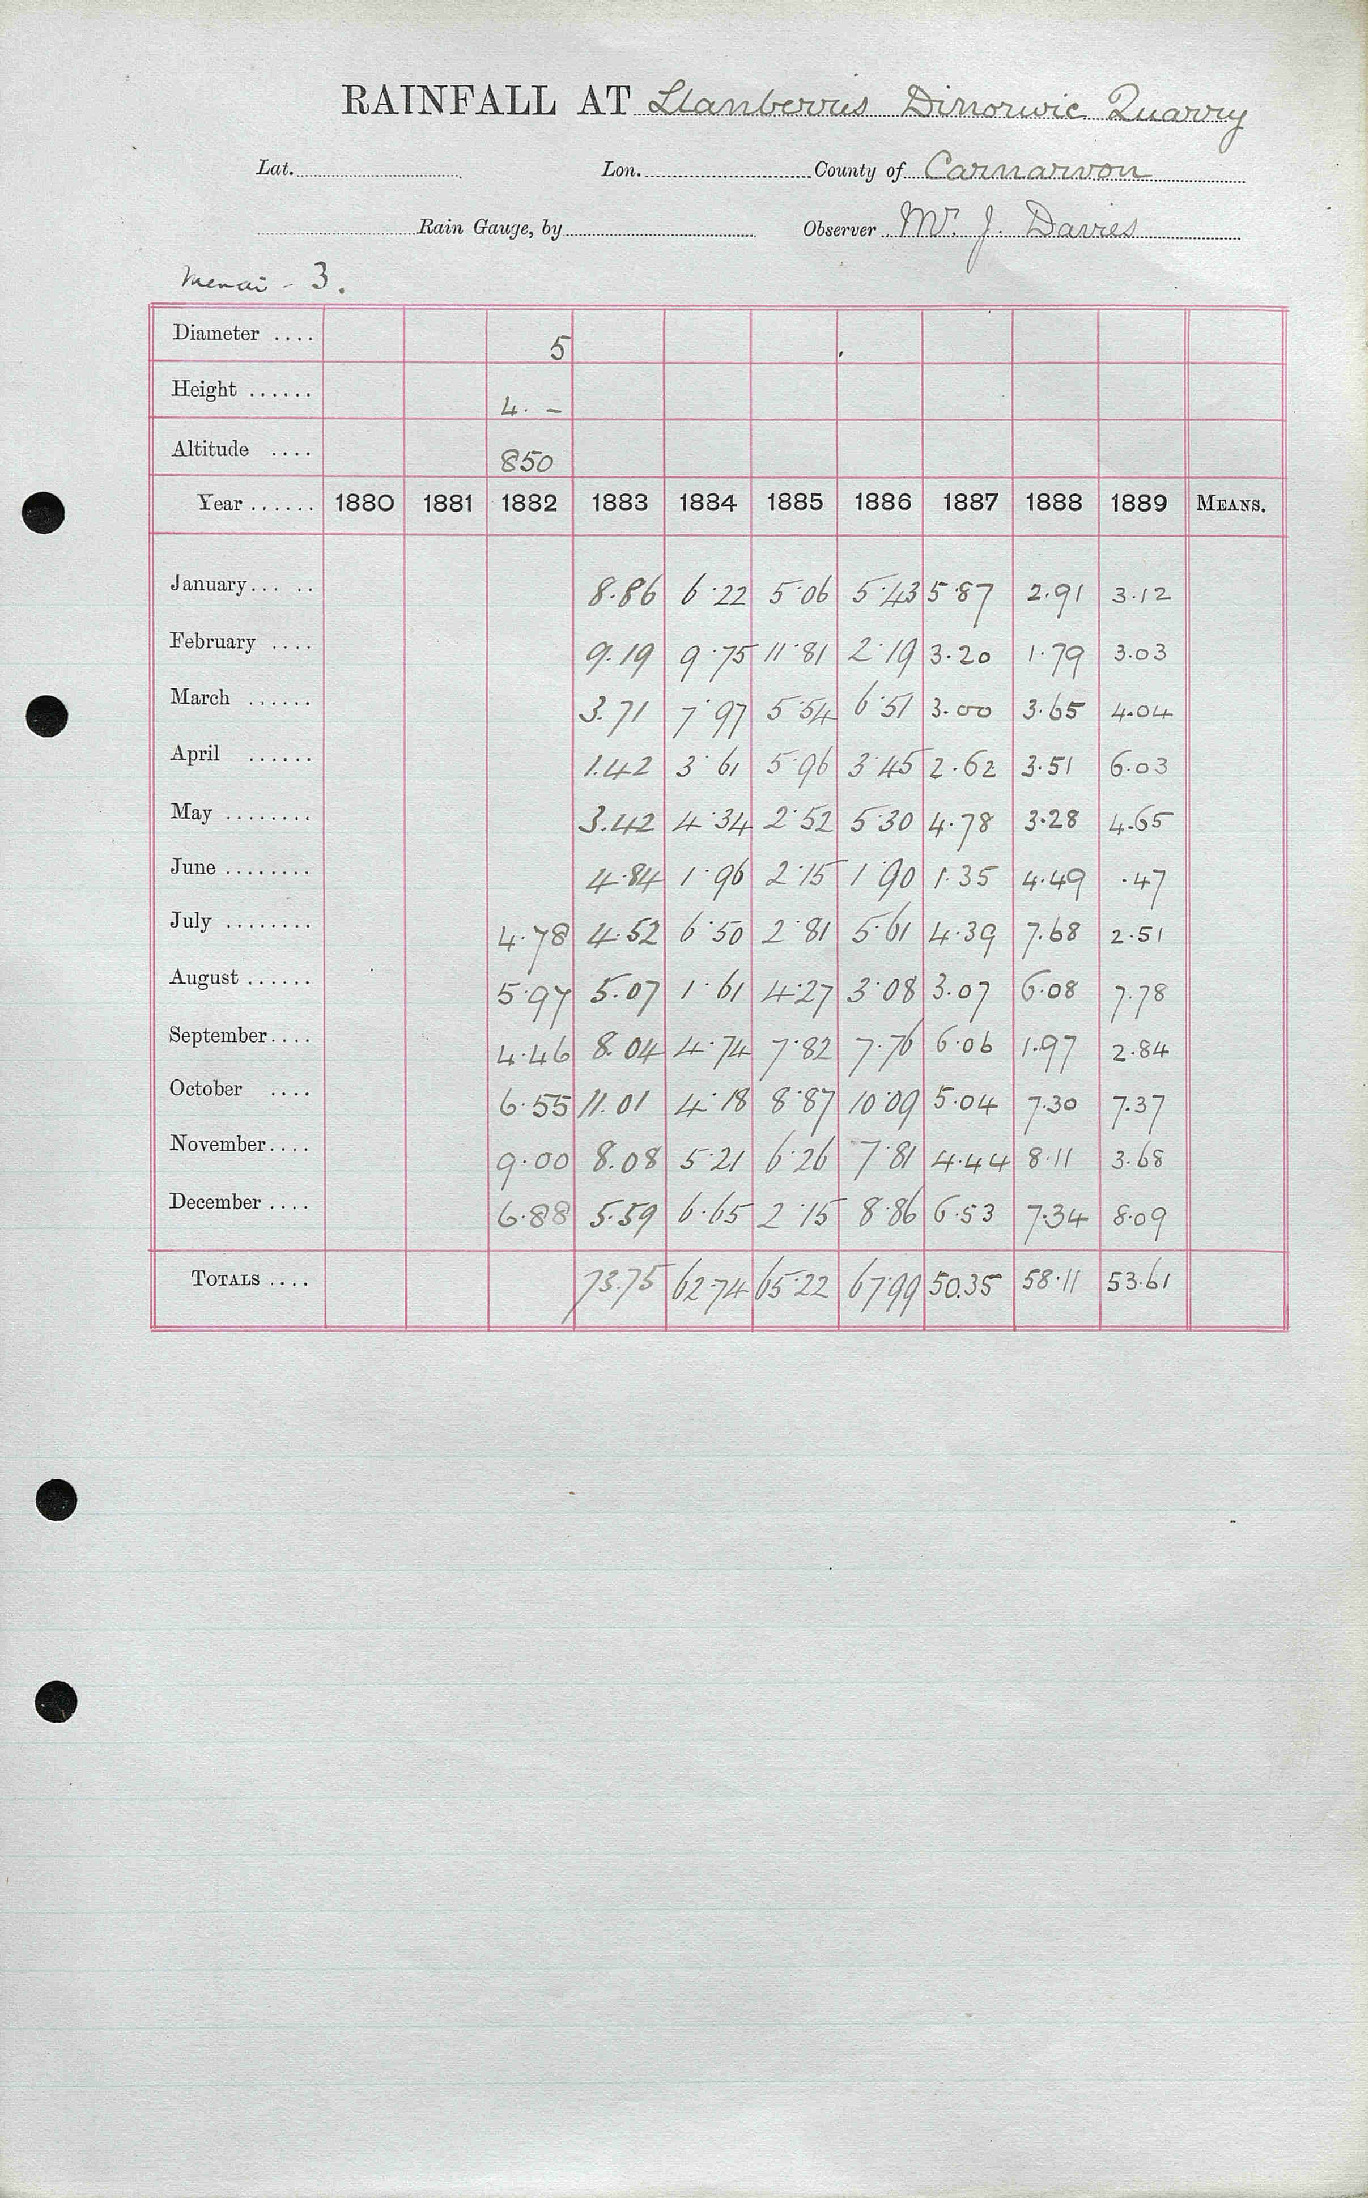 RAINFALL AT Llanberris Dinorwic Quarry
Lat. Lon. County of Carnarvon
Rain Gauge, by Observer Mr. J. Davies
Menai - 3.
Diameter .... 5
Height ...... 4. -
Altitude .... 850
Year ...... 1880 1881 1882 1883 1884 1885 1886 1887 1888 1889 MEANS.
January... .. 8.86 6.22 5.06 5.43 5.87 2.91 3.12
February .... 9.19 9.75 11.81 2.19 3.20 1.79 3.03
March ...... 3.71 7.97 5.54 6.51 3.00 3.65 4.04
April ...... 1.42 3.61 5.96 3.45 2.62 3.51 6.03
May ........ 3.42 4.34 2.52 5.30 4.78 3.28 4.65
June ........ 4.84 1.96 2.15 1.90 1.35 4.49 .47
July ........ 4.78 4.52 6.50 2.81 5.61 4.39 7.68 2.51
August ...... 5.97 5.07 1.61 4.27 3.08 3.07 6.08 7.78
September.... 4.46 8.04 4.74 7.82 7.76 6.06 1.97 2.84
October .... 6.55 11.01 4.18 8.87 10.09 5.04 7.30 7.37
November.... 9.00 8.08 5.21 6.26 7.81 4.44 8.11 3.68
December .... 6.88 5.59 6.65 2.15 8.86 6.53 7.34 8.09
TOTALS .... 73.75 62.74 65.22 67.99 50.35 58.11 53.61